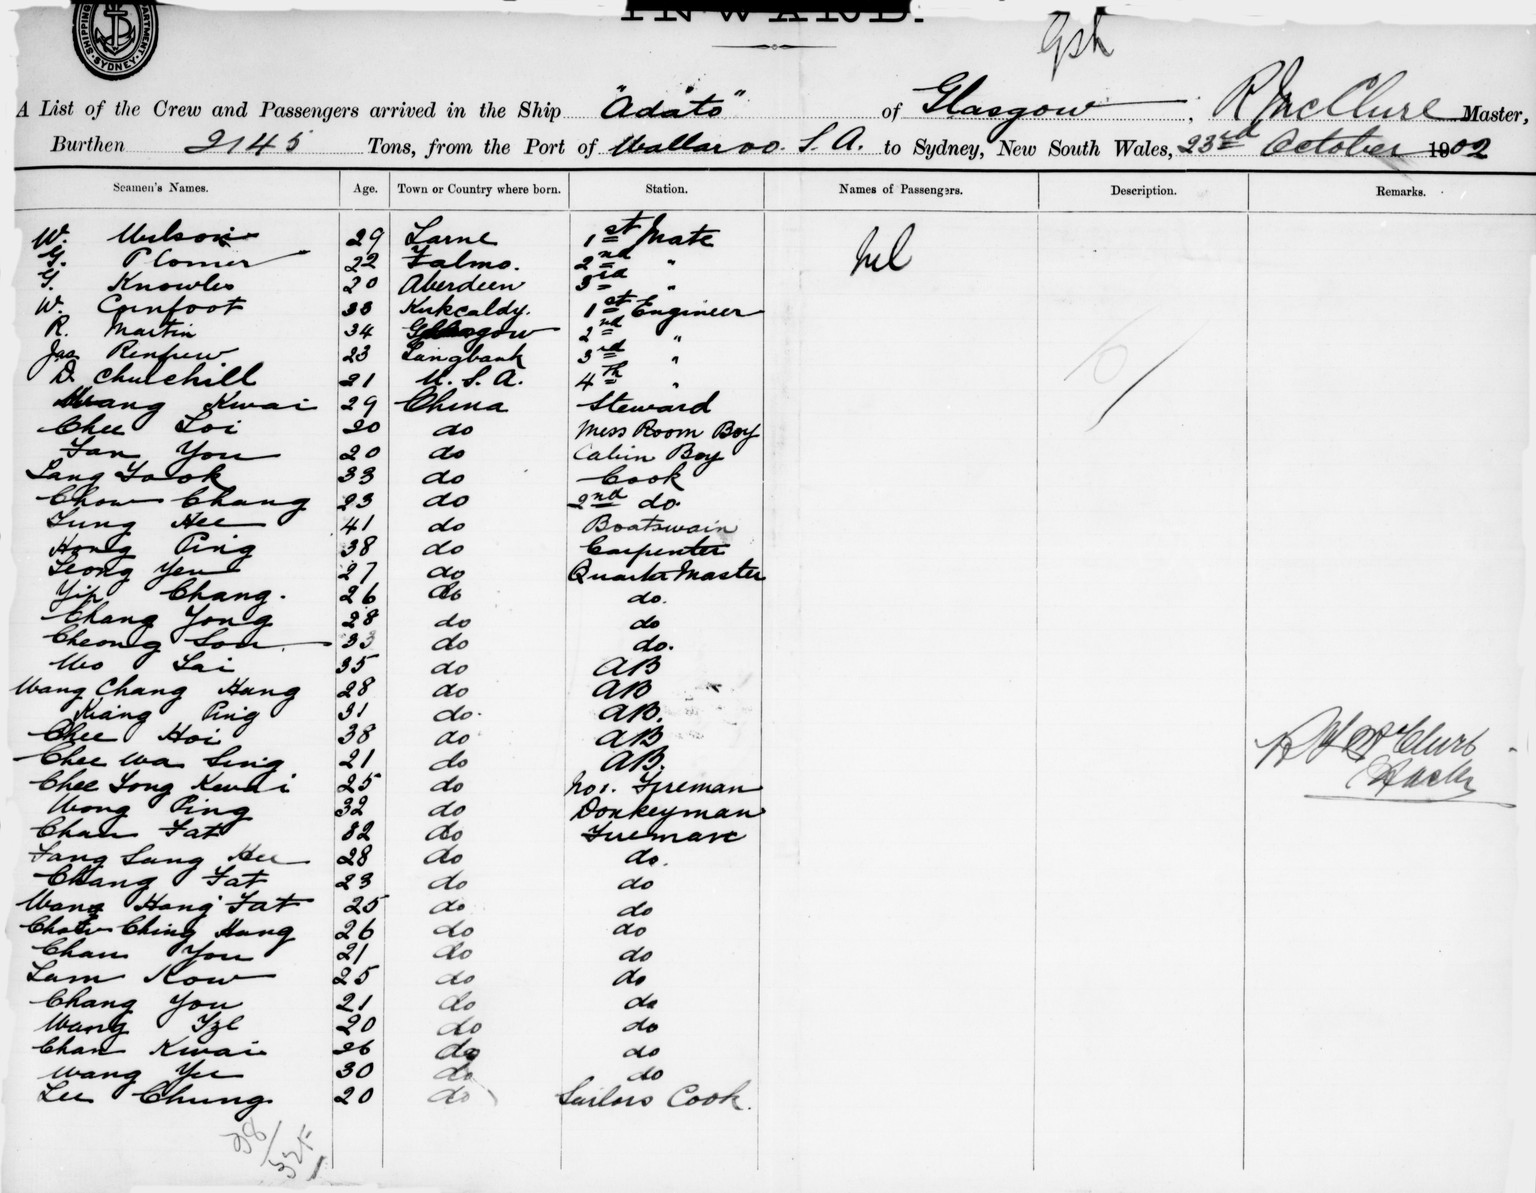 INWARD.
SHIPPING DEPARTMENT. SYDNEY
A List of the Crew and Passengers arrived in the Ship "Adato" of Glasgow; R J McClure Master,
Burthen 2145 Tons, from the Port of Wallaroo. S. A. to Sydney, New South Wales, 23rd October 1902
Seamen's Names. Age. Town or Country where born. Station. Names of Passengers. Description. Remarks.
W. 29 Larne 1st Mate Nil
G. 22 Falmo. 2nd "
G. Knowles 20 Aberdeen 3rd "
W. Cornfoot 33 Kirkcaldy. 1st Engineer
R. Martin 34 Glasgow 2nd "
Jas Renfrew 23 Langbank 3rd "
D. Churchill 21 U. S. A. 4th "
Kwai 29 China Steward
Chee Loi 20 do Mess Room Boy
You 20 do Cabin Boy
33 do Cook
Chow Chang 23 do 2nd do.
Hee 41 do Boatswain
Hong Ping 38 do Carpenter
Leong Yew 27 do Quarter Master
Yip Chang. 26 do do.
Chang Yong 28 do do
Cheong 33 do do.
Wo Lai 35 do AB
Wang Chang Hang 28 do AB
Kiang Ping 31 do. AB.
Chee Hoi 38 do AB
Chee Wa Sing 21 do AB.
Chee Yong Kwai 25 do No 1. Fireman
Wong Ping 32 do Donkeyman
Chan Fat 32 do Fireman
28 do do.
Chang Fat 23 do do
Wong Hang Fat 25 do do
Ching Hang 26 do do
Chan You 21 do do
Lam Kow 25 do do
Chang You 21 do do
Wang 20 do do
Chan Kwai 26 do do
Wang Yee 30 do do
Lee Chung 20 do Sailors Cook.
R J McClure
Master